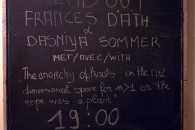 READ OUT
FRANCES D'ATH
&
DASNIYA SOMMER
MET/AVEC/WITH
"The anarchy of knots on the
dimensional space for n>1 or: the
rope was a plant"
19:00